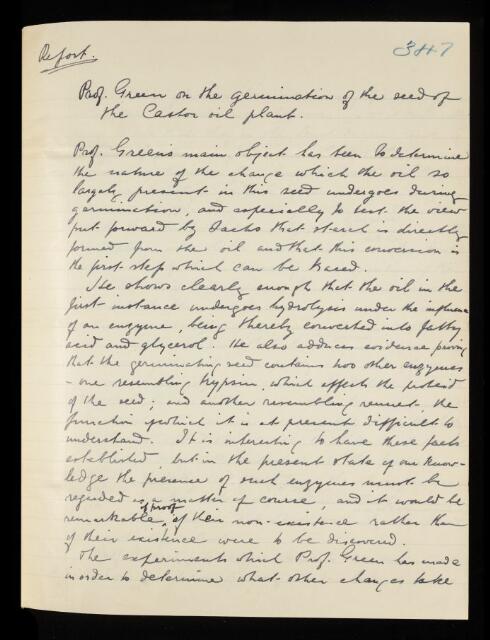 Report.
347
Prof. Green on the germination of the seed of
the Castor oil plant.
Prof. Green's main object has been to determine
the nature of the change which the oil so
largely present in this seed undergoes during
germination, and especially to test the view
put forward by Sachs that starch is directly
formed from the oil and that this conversion is
the first step which can be traced.
He shows clearly enough that the oil in the
first instance undergoes hydrolysis under the influence
of an enzyme, being thereby converted into fatty
acid and glycerol. He also adduces evidence proving
that the germinating seed contains two other enzymes
- one resembling trypsin, which affects the proteid
of the seed; and another resembling rennet, the
function of which it is at present difficult to
understand. It is interesting to have these facts
established, but in the present state of our know-
ledge the presence of such enzymes must be
regarded as a matter of course, and it would be
remarkable, if proof of their non-existence rather than
of their existence were to be discovered.
The experiments which Prof. Green has made
in order to determine what other changes take